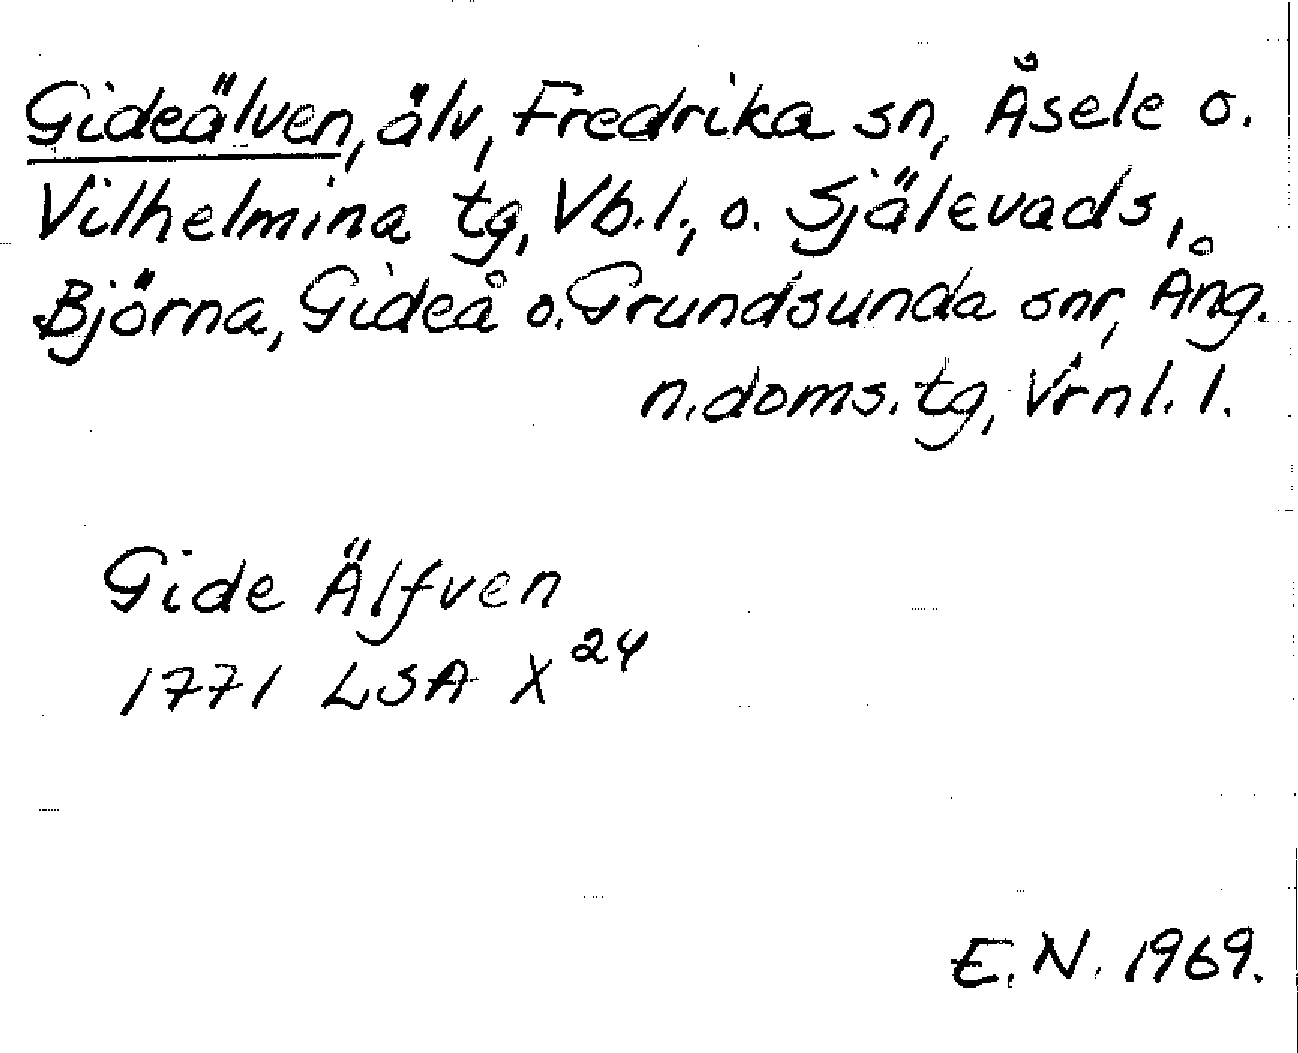 Gideälven, älv, Fredrika sn, Åsele o.
Vilhelmina tg, Vb.l., o. Själevads,
Björna, Gideå o. Grundsunda snr, Ång.
n. doms. tg, Vrnl. l.
Gide Älfven
1771 LSA X 24
E.N. 1969.